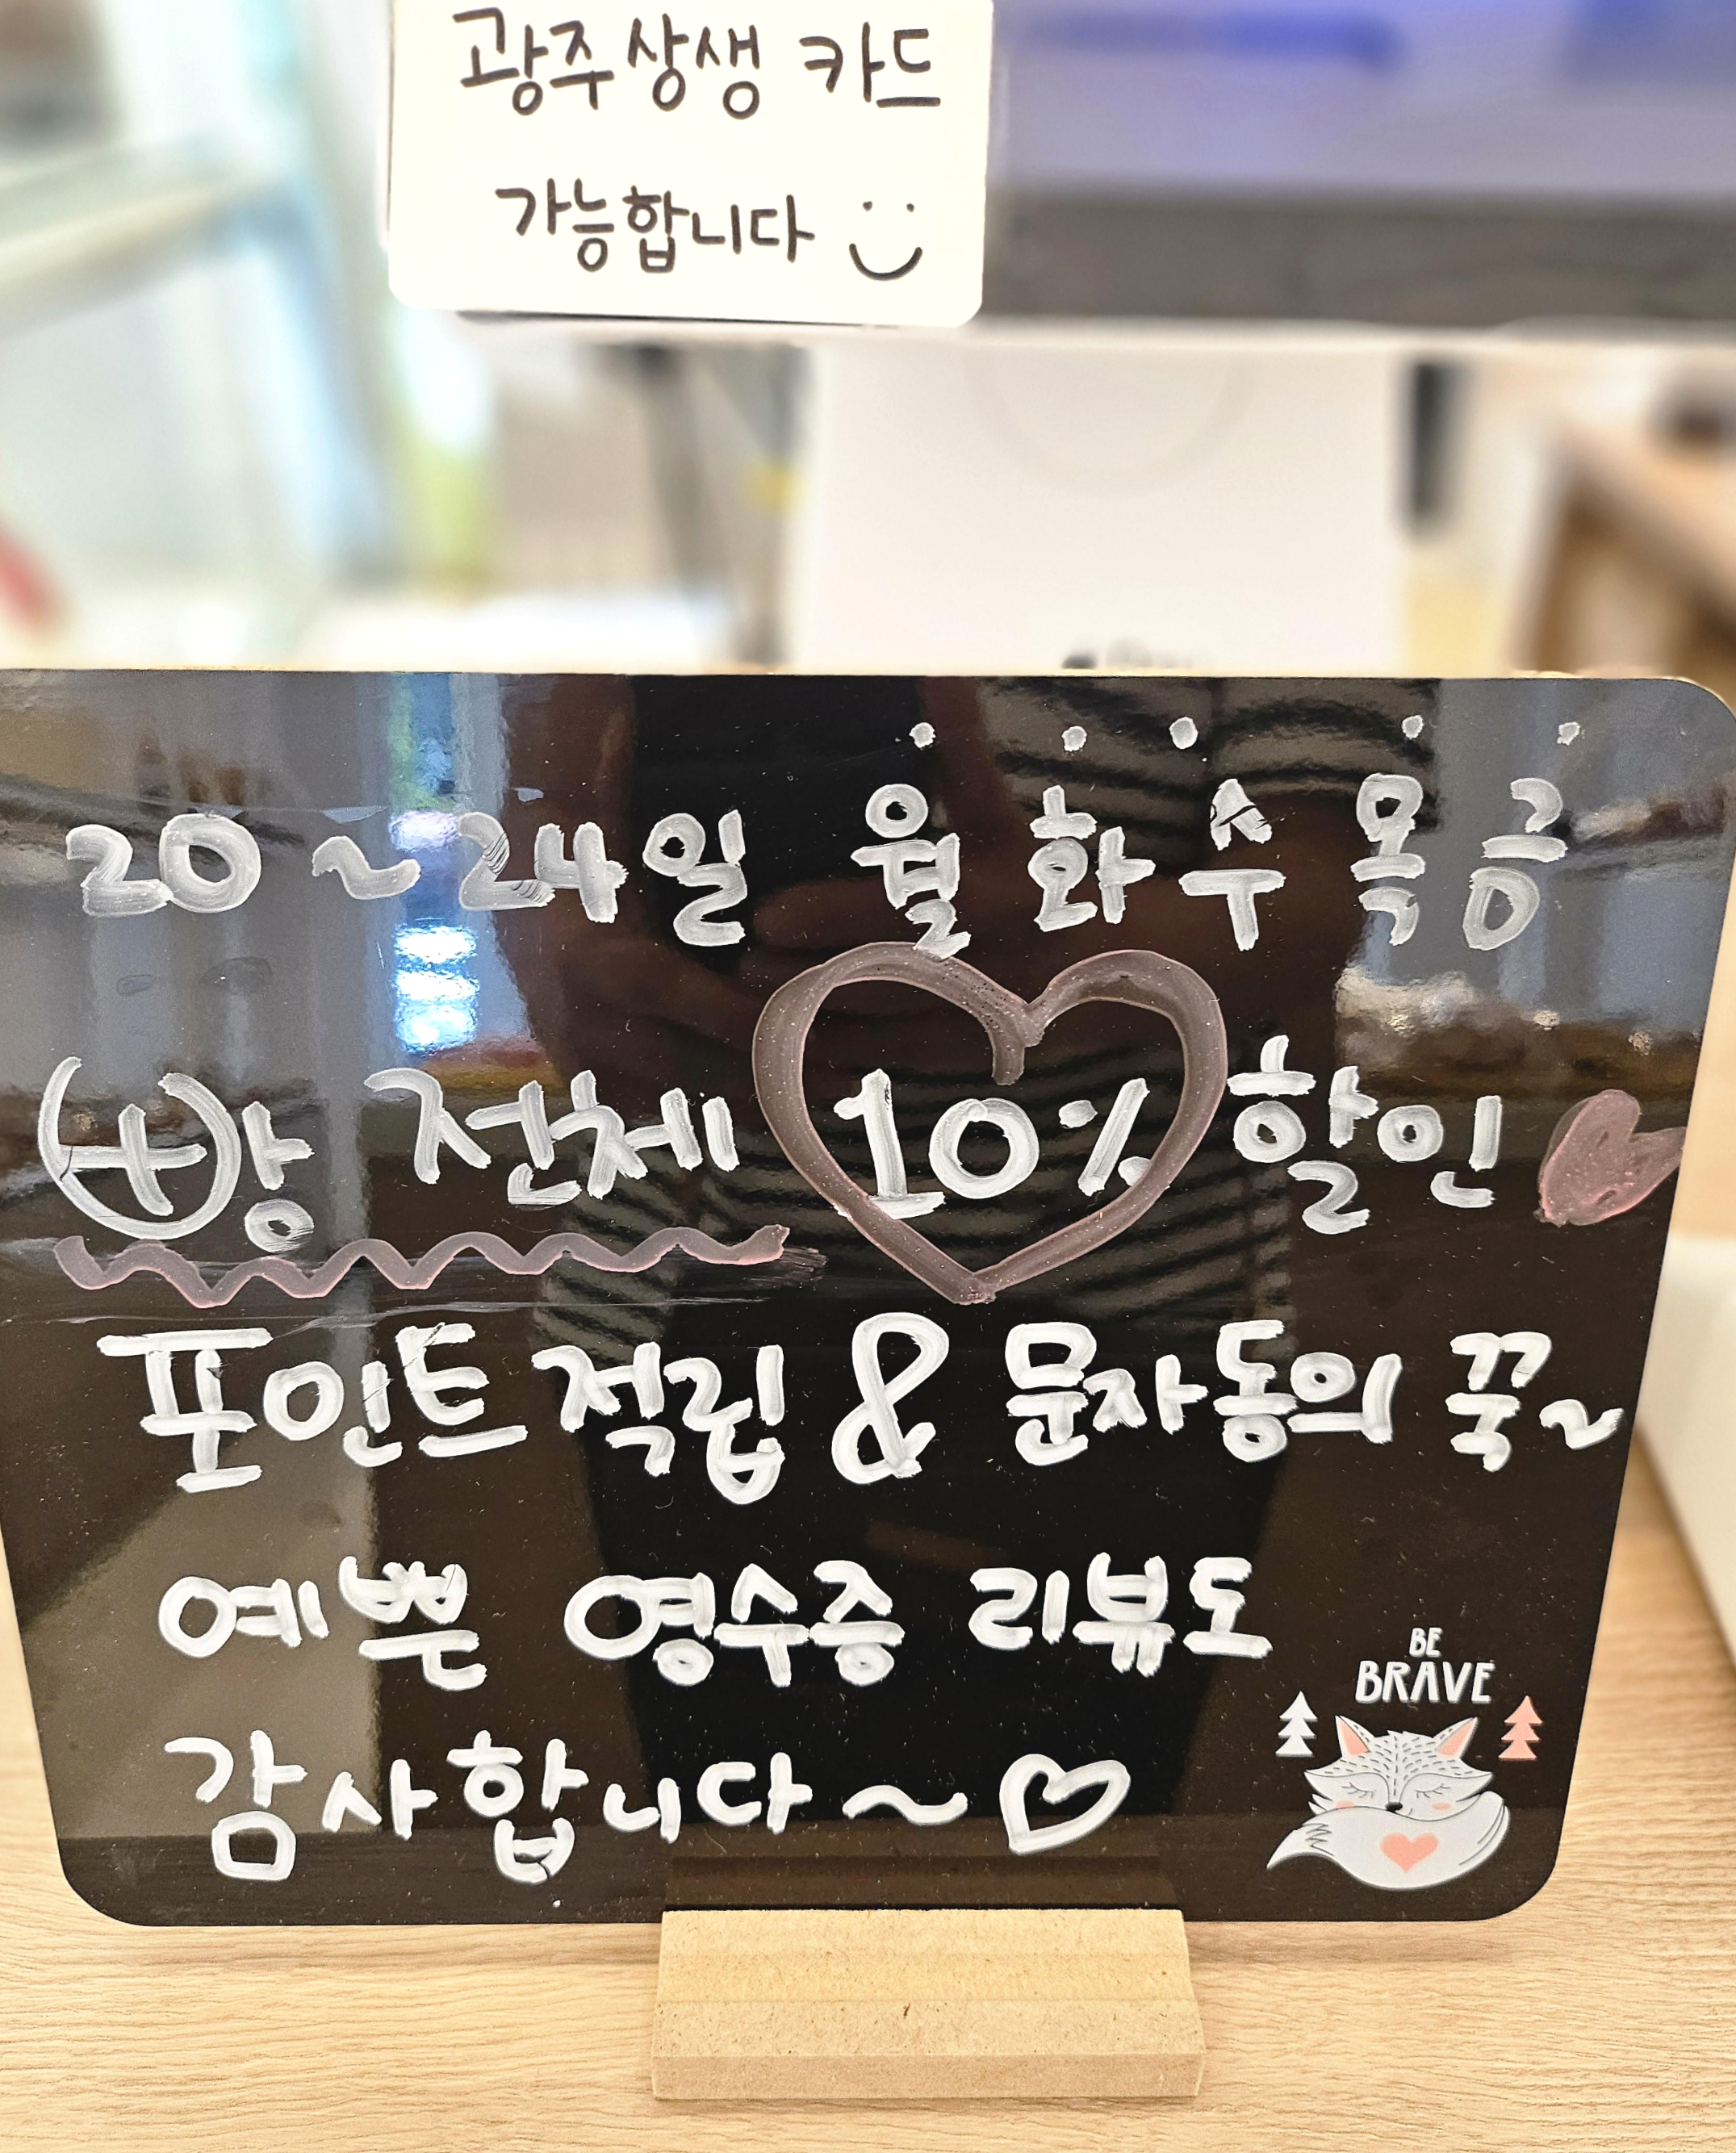 광주상생 카드
가능합니다
20~24일 월 화 수 목 금
매장 전체 10% 할인
포인트 적립 & 문자동의 꾹~
예쁜 영수증 리뷰도
감사합니다~♡
BE
BRAVE